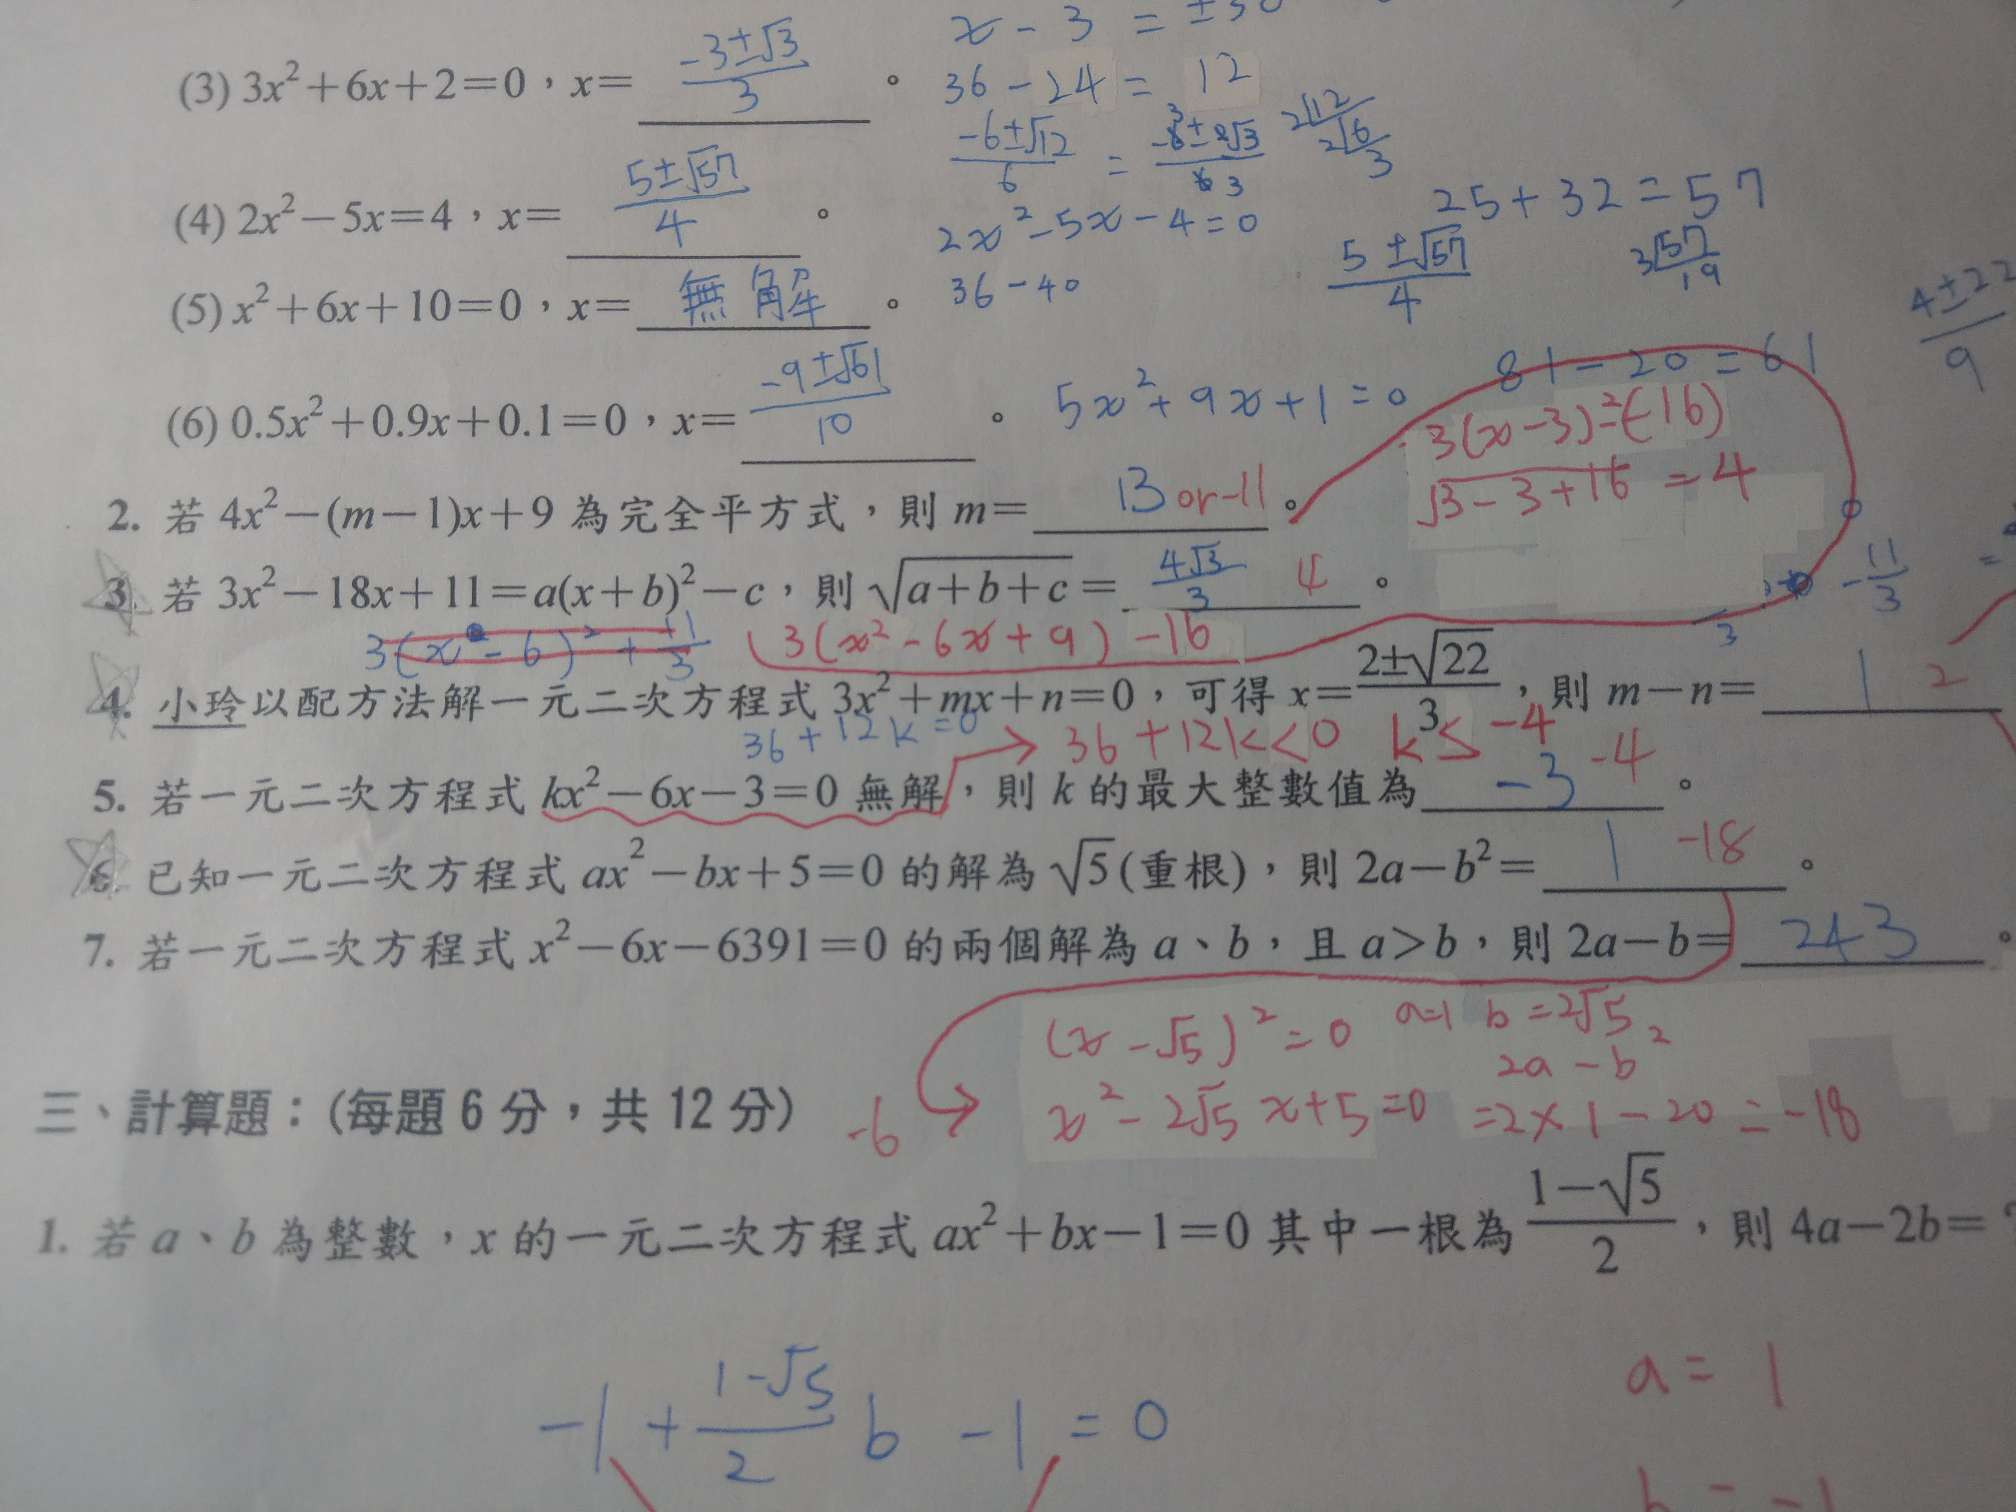 x - 3 = ±
(3) 3x²+6x+2=0，x= (-3±√3)/3 。 36 - 24 = 12
(-6±√12)/6 = 2√12 2√6 3
(4) 2x²-5x=4，x= (5±√57)/4 。 2x²-5x-4=0 25+32=57
(5±√57)/4 3√57 19
(5) x²+6x+10=0，x= 無解 。 36-40
4±22
9
(6) 0.5x²+0.9x+0.1=0，x= (-9±√61)/10 。 5x²+9x+1=0 81-20=61
3(x-3)²=(-16)
√3-3+16 = 4
2. 若 4x²-(m-1)x+9 為完全平方式，則 m= 13 or -11 。
3. 若 3x²-18x+11=a(x+b)²-c，則 √(a+b+c) = 4√3/3 4 。 -11/3
3(x²-6)² + 11/3 3(x²-6x+9)-16 3
4. 小玲以配方法解一元二次方程式 3x²+mx+n=0，可得 x=(2±√22)/3，則 m-n= 1 2
36+12k=0 36+12k<0 k≤-4
5. 若一元二次方程式 kx²-6x-3=0 無解，則 k 的最大整數值為 -3 -4 。
6. 已知一元二次方程式 ax²-bx+5=0 的解為 √5(重根)，則 2a-b²= 1 -18 。
7. 若一元二次方程式 x²-6x-6391=0 的兩個解為 a、b，且 a>b，則 2a-b= 243 。
(x-√5)²=0 a=1 b=2√5
2a-b²
x²-2√5x+5=0 =2×1-20=-18
三、計算題：(每題 6 分，共 12 分) -6
1. 若 a、b 為整數，x 的一元二次方程式 ax²+bx-1=0 其中一根為 (1-√5)/2，則 4a-2b=?
a=1
-1 + (1-√5)/2 b -1 = 0
b=-1